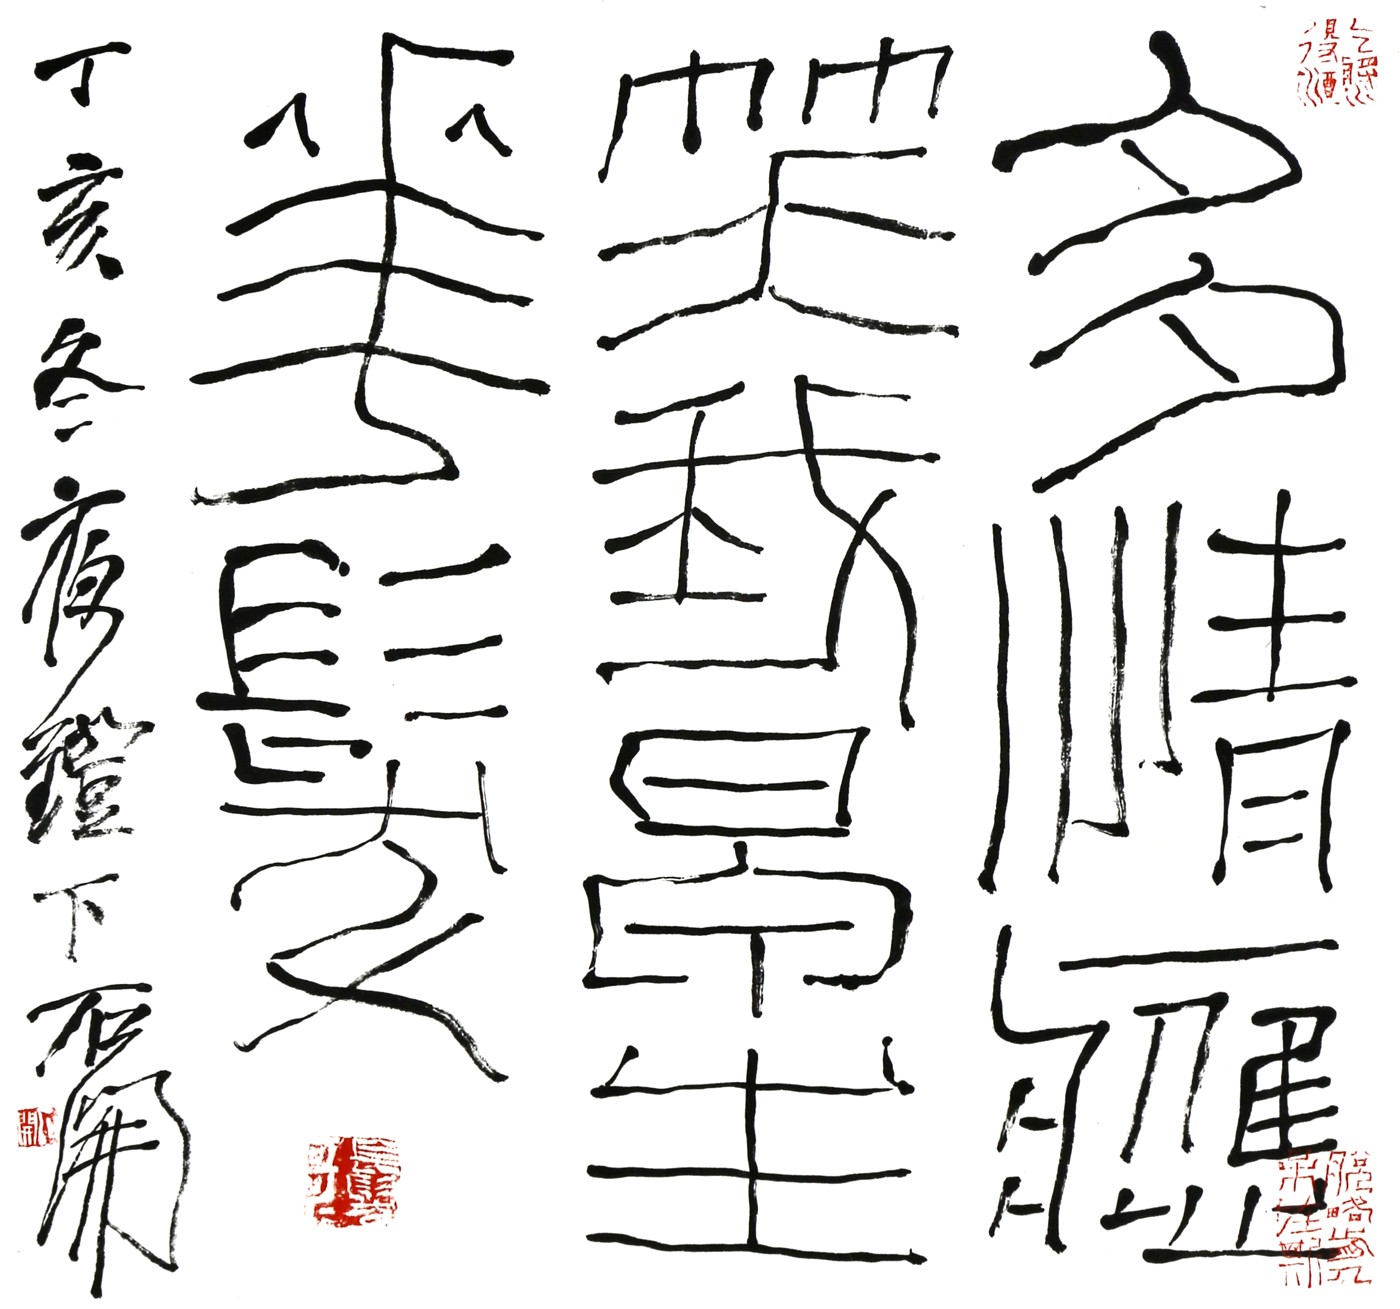 多情應
笑我早生
華髮
丁亥冬夜鐙下石開